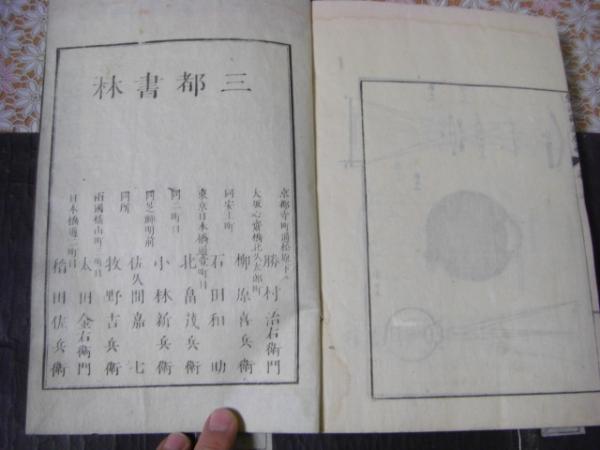 三都書林
京都寺町通松原下ル 勝村治右衛門
大坂心斎橋北久太郎町 柳原喜兵衛
同安土町 石田和助
東京日本橋通壱町目 北畠茂兵衛
同二町目 小林新兵衛
同芝神明前 佐久間嘉七
同所 牧野吉兵衛
両國横山町 太田金右衛門
日本橋通二町目 稲田佐兵衛